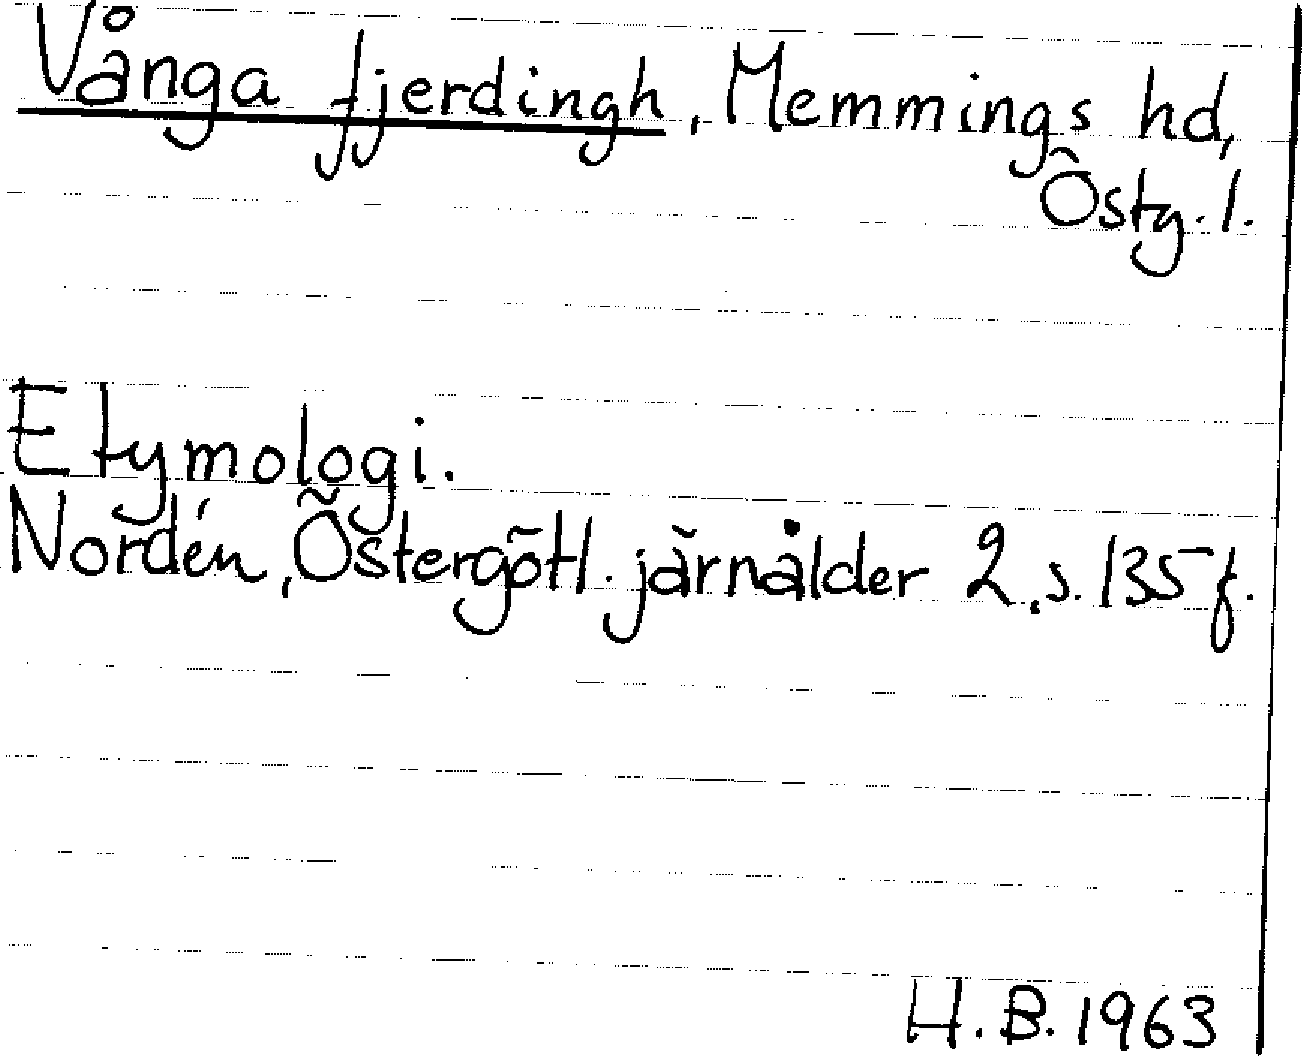 Vånga fjerdingh, Memmings hd,
Östg. l.
Etymologi.
Nordén, Östergötl. järnålder 2, s. 135 f.
H. B. 1963